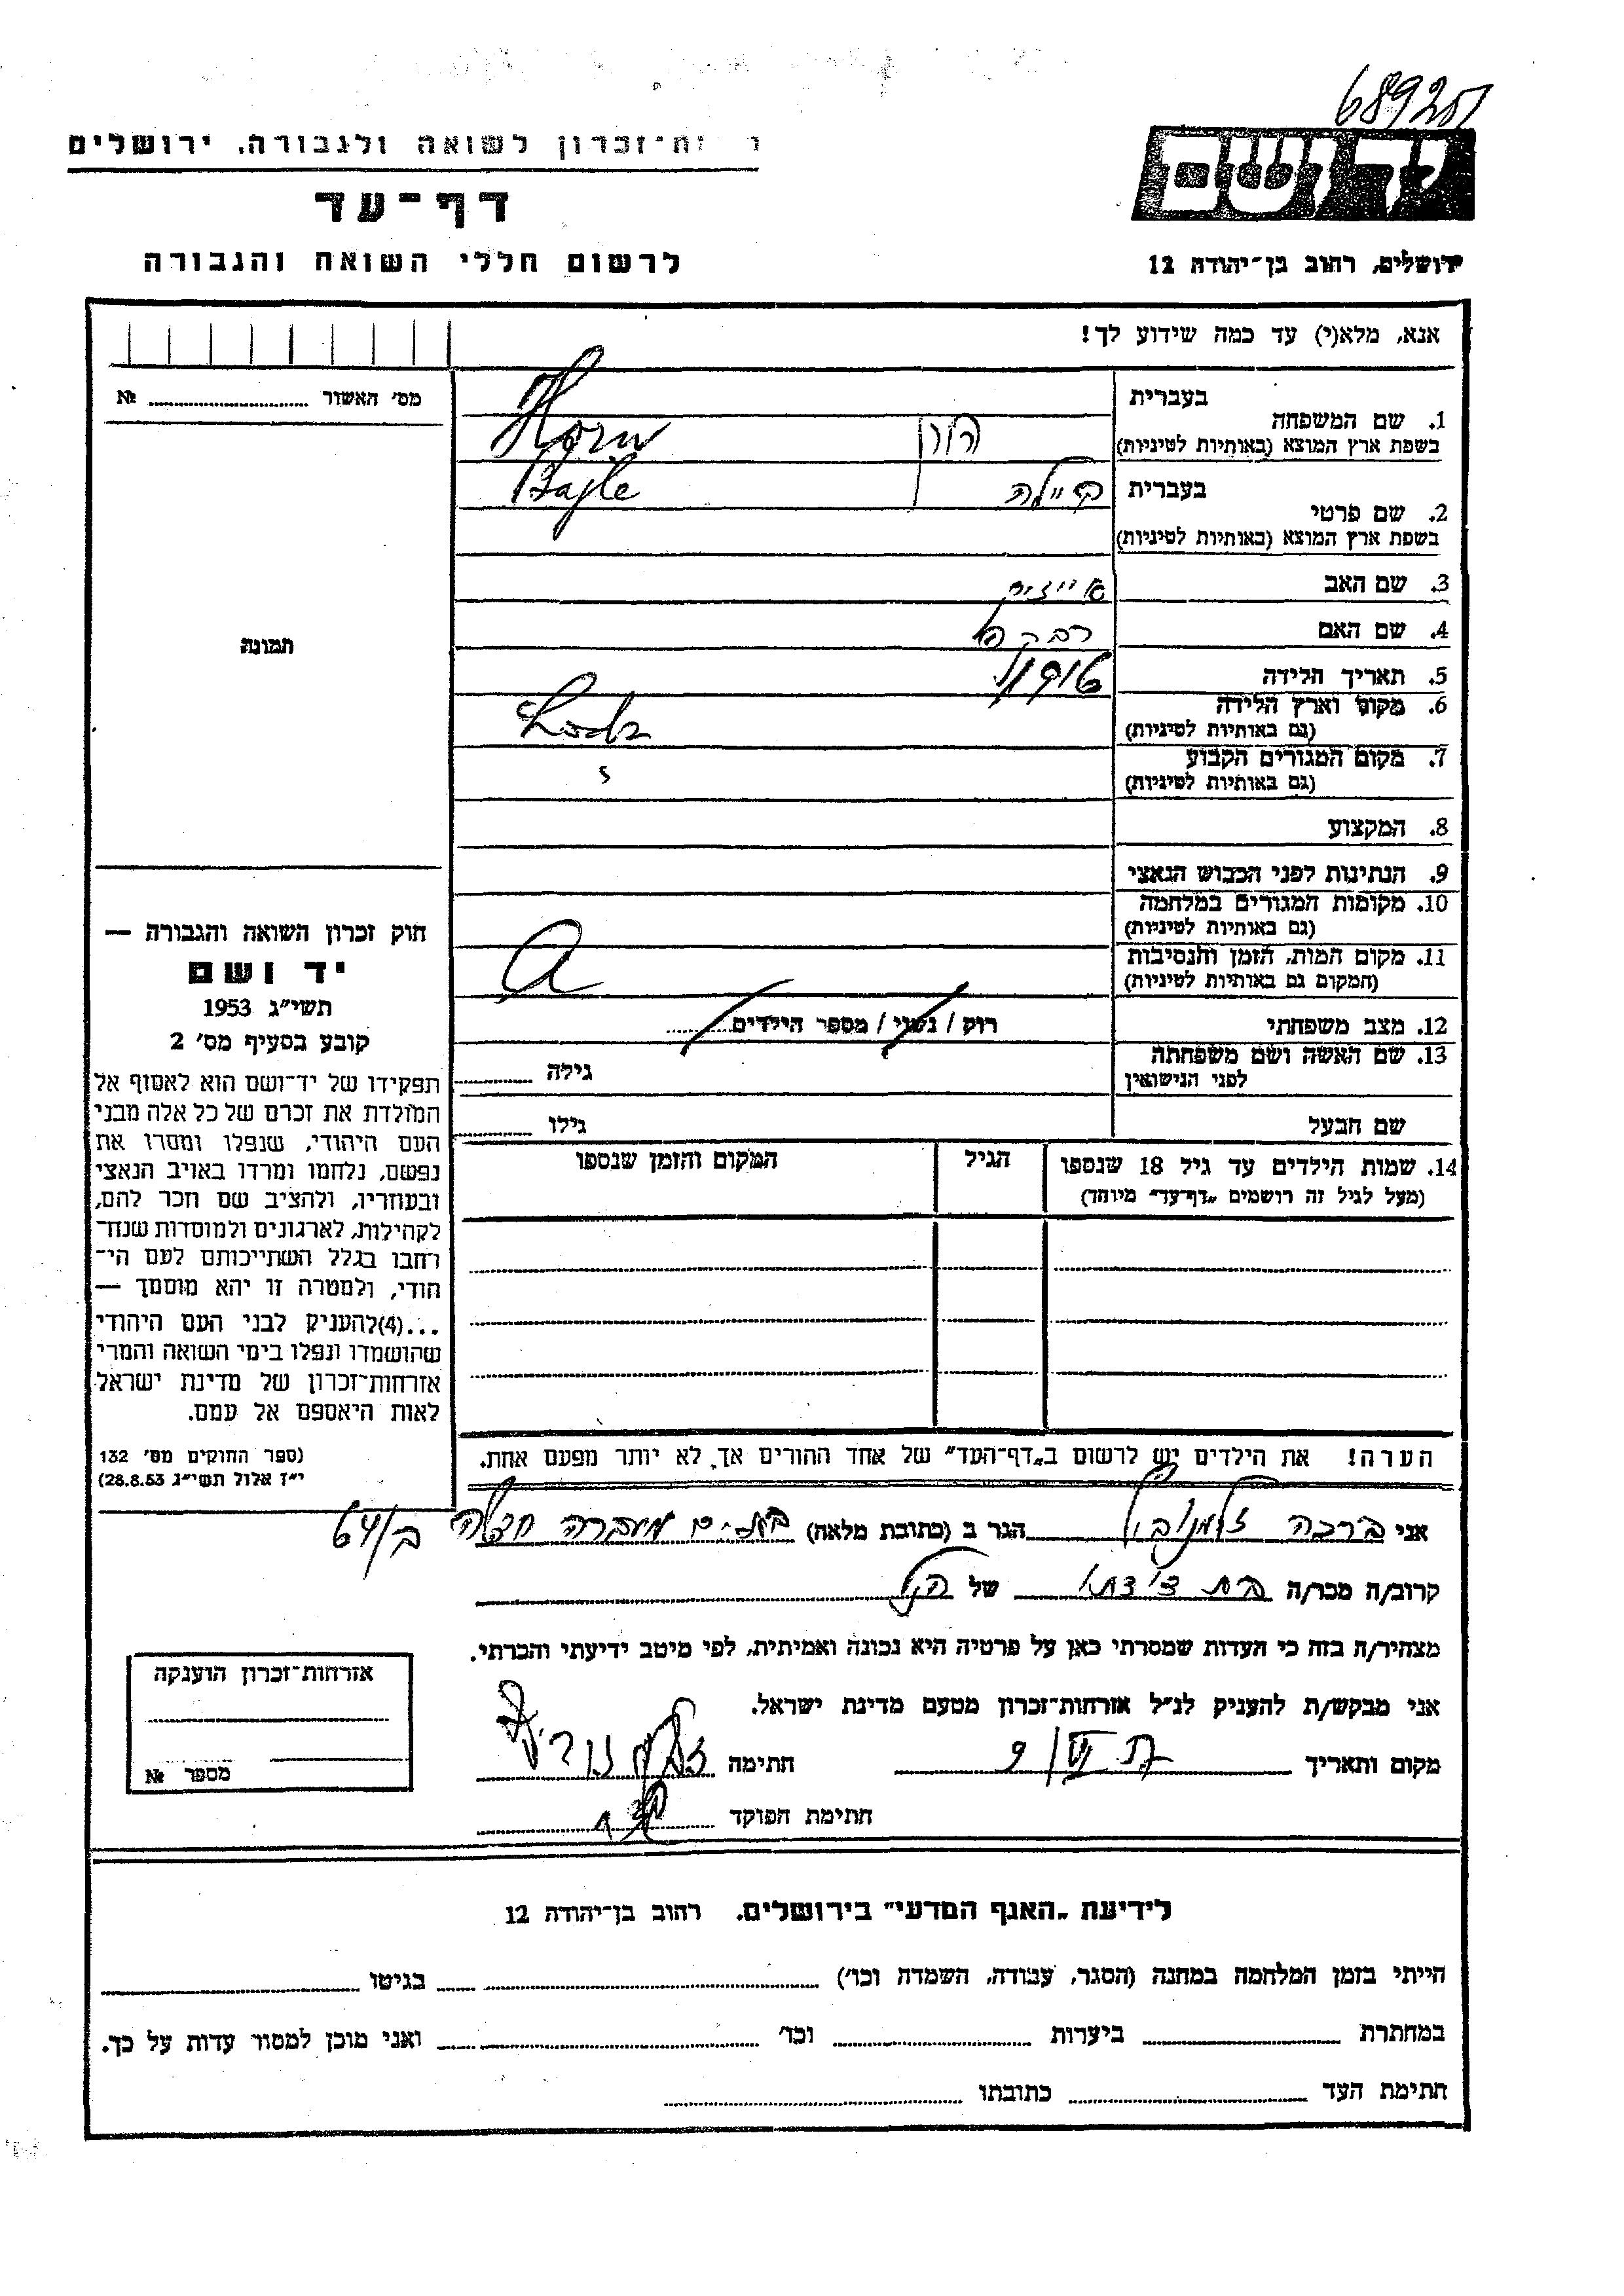 689201
ות-זכרון לשואה ולגבורה. ירושלים
דף-עד
לרשום חללי השואה והגבורה
ירושלים, רחוב בן-יהודה 12
אנא, מלא(י) עד כמה שידוע לך!
מס' האשור № 
בעברית
1. שם המשפחה
בשפת ארץ המוצא (באותיות לטיניות)
הורן Horn
בעברית
2. שם פרטי
בשפת ארץ המוצא (באותיות לטיניות)
Bajle
3. שם האב
4. שם האם
רבקה
5. תאריך הלידה
6. מקום וארץ הלידה
(גם באותיות לטיניות)
Lodz
7. מקום המגורים הקבוע
(גם באותיות לטיניות)
8. המקצוע
9. הנתינות לפני הכבוש הנאצי
10. מקומות המגורים במלחמה
(גם באותיות לטיניות)
11. מקום המות, הזמן והנסיבות
(המקום גם באותיות לטיניות)
12. מצב משפחתי
רוק / נשוי / מספר הילדים
13. שם האשה ושם משפחתה
לפני הנישואין
גילה
שם הבעל
גילו
14. שמות הילדים עד גיל 18 שנספו
(מעל לגיל זה רושמים „דף-עד" מיוחד)
הגיל
המקום והזמן שנספו
תמונה
חוק זכרון השואה והגבורה —
יד ושם
תשי"ג 1953
קובע בסעיף מס' 2
תפקידו של יד-ושם הוא לאסוף אל
המולדת את זכרם של כל אלה מבני
העם היהודי, שנפלו ומסרו את
נפשם, נלחמו ומרדו באויב הנאצי
ובעוזריו, ולהציב שם וזכר להם,
לקהילות, לארגונים ולמוסדות שנח-
רחבו בגלל השתייכותם לעם הי-
הודי, ולמטרה זו יהא מוסמך —
...(4)להעניק לבני העם היהודי
שהושמדו ונפלו בימי השואה והמרי
אזרחות-זכרון של מדינת ישראל
לאות היאספם אל עמם.
(ספר החוקים מס' 132
י"ז אלול תשי"ג 28.8.53)
הערה! את הילדים יש לרשום ב„דף-העד" של אחד ההורים אך לא יותר מפעם אחת.
אני ברכה הגר ב (כתובת מלאה) מעברה ב/64
קרוב/ה מכר/ה בת דודתו של
מצהיר/ה בזה כי העדות שמסרתי כאן על פרטיה היא נכונה ואמיתית, לפי מיטב ידיעתי והכרתי.
אני מבקש/ת להעניק לנ"ל אזרחות-זכרון מטעם מדינת ישראל.
מקום ותאריך
חתימה
חתימת הפוקד
אזרחות-זכרון הוענקה
מספר №
לידיעת „האגף המדעי" בירושלים. רחוב בן-יהודה 12
הייתי בזמן המלחמה במחנה (הסגר, עבודה, השמדה וכו') בגיטו
במחתרת ביערות וכו' ואני מוכן למסור עדות על כך.
חתימת העד כתובתו